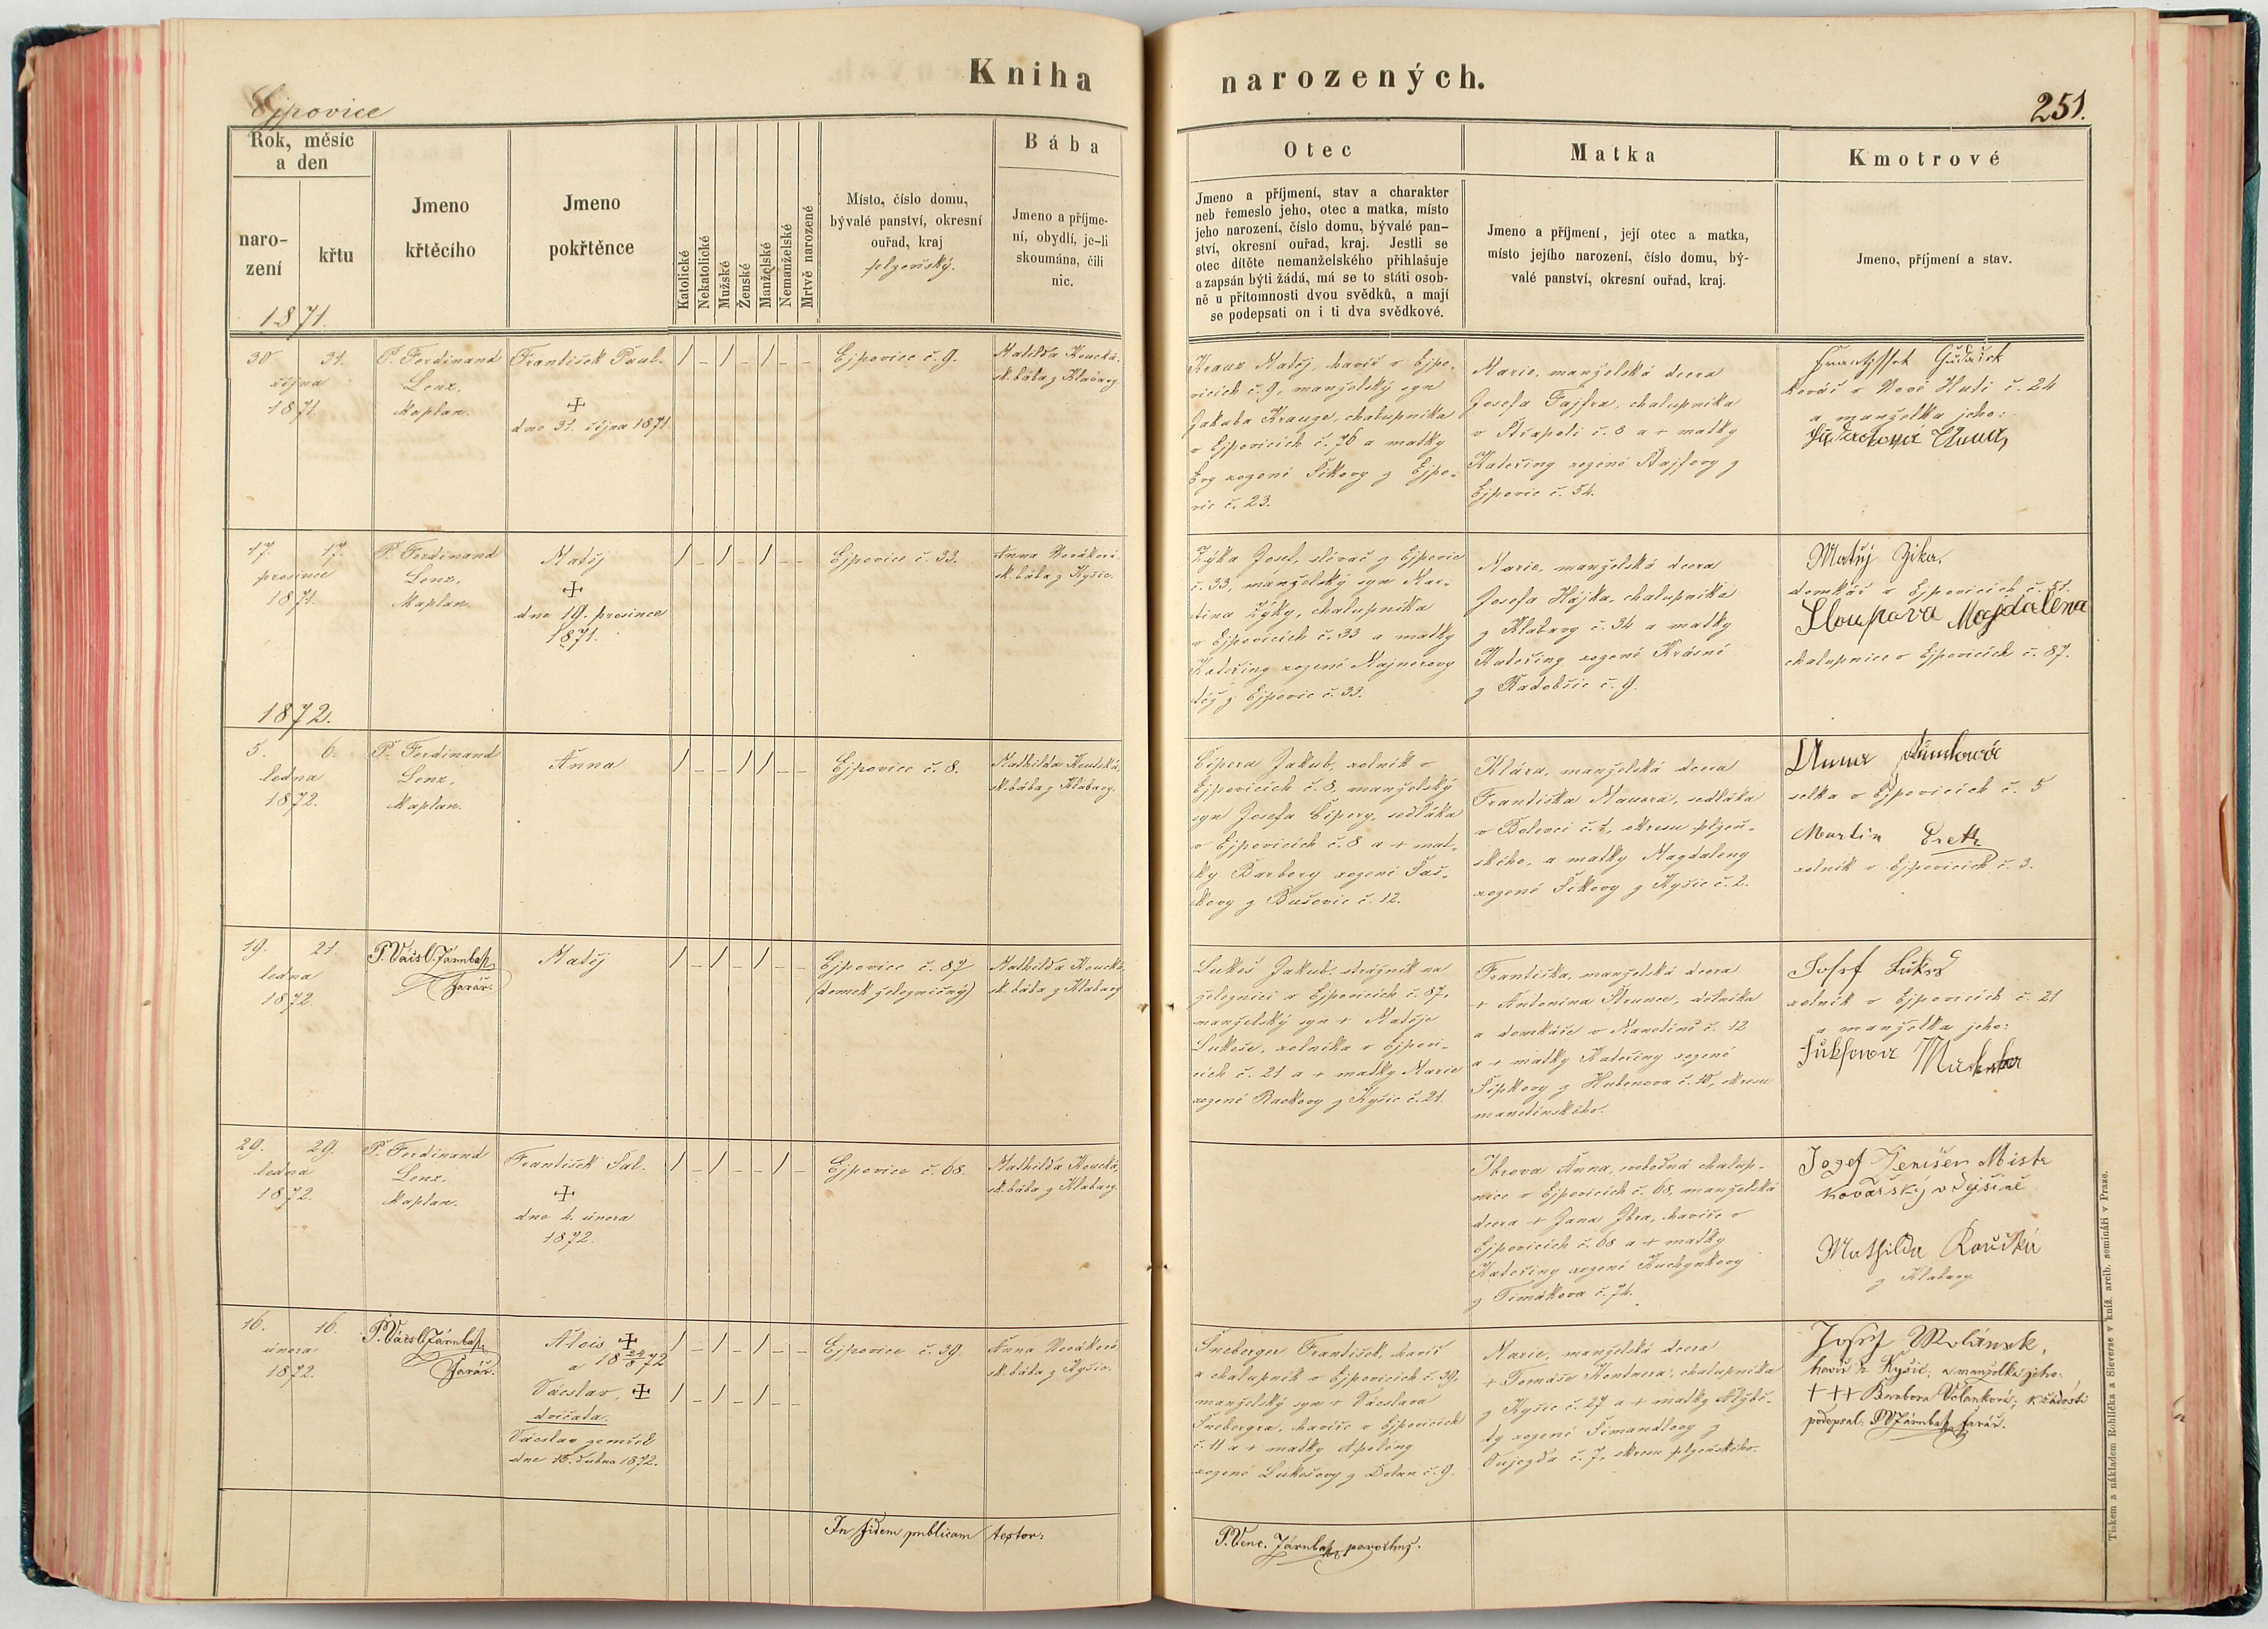 Kniha
narozených.
Ejpovice
251.
Rok, měsíc
a den
naro-
zení
křtu
1871.
Jmeno
křtěcího
Jmeno
pokřtěnce
Katolické
Nekatolické
Mužské
Ženské
Manželské
Nemanželské
Mrtvě narozené
Místo, číslo domu,
bývalé panství, okresní
ouřad, kraj
plzeňský.
Bába
Jmeno a příjme-
ní, obydlí, je-li
skoumána, čili
nic.
Otec
Jmeno a příjmení, stav a charakter
neb řemeslo jeho, otec a matka, místo
jeho narození, číslo domu, bývalé pan-
ství, okresní ouřad, kraj. Jestli se
otec dítěte nemanželského přihlašuje
a zapsán býti žádá, má se to státi osob-
ně u přítomnosti dvou svědků, a mají
se podepsati on i ti dva svědkové.
Matka
Jmeno a příjmení, její otec a matka,
místo jejího narození, číslo domu, bý-
valé panství, okresní ouřad, kraj.
Kmotrové
Jmeno, příjmení a stav.
30 31.
října
1871.
P. Ferdinand
Lenz,
kaplan.
František Paul.
+
dne 31. října 1871.
/ - / - / - -
Ejpovice č. 9.
Matilda Koucká,
zk. bába z Klabavy
Kraus Matěj, havíř v Ejpo-
vicích č. 9, manželský syn
Jakuba Krause, chalupníka
v Ejpovicích č. 76 a matky
Evy rozené Šikovy z Ejpo-
vic č. 23.
Marie, manželská dcera
Josefa Fajfra, chalupníka
v Střapoli č. 8 a + matky
Kateřiny rozené Štajfovy z
Ejpovic č. 54.
kovář v Nové Huti č. 24
a manželka jeho:
Anna
17. 17.
prosince
1871.
P. Ferdinand
Lenz,
kaplan.
Matěj
+
dne 19. prosince
1871.
/ - / - / - -
Ejpovice č. 33.
Anna Nováková
zk. bába z Kyšic.
Zýka Josef, slévač z Ejpovic
č. 33, manželský syn Mar-
tina Zýky, chalupníka
v Ejpovicích č. 33 a matky
Kateřiny rozené Majnerovy
též z Ejpovic č. 33.
Marie, manželská dcera
Josefa Hájka, chalupníka
z Klabavy č. 34 a matky
Kateřiny rozené Krásné
z Radobšic č. 9.
Matěj Zika.
domkář v Ejpovicích č. 51.
Sloupova Magdalena
chalupnice v Ejpovicích č. 87.
1872.
5. 6.
ledna
1872.
P. Ferdinand
Lenz,
kaplan.
Anna
/ - - / / - -
Ejpovice č. 8.
Mathilda Koutská,
zk. bába z Klabavy.
Čipera Jakub, rolník v
Ejpovicích č. 8, manželský
syn Josefa Čipery, sedláka
v Ejpovicích č. 8 a + mat-
ky Barbory rozené Šaš-
kovy z Bušovic č. 12.
Klára, manželská dcera
Františka Mauera, sedláka
v Bolevci č. 1, okresu plzeň-
ského, a matky Magdaleny
rozené Šikovy z Kyšic č. 2.
Anna
selka v Ejpovicích č. 5
Martin
rolník v Ejpovicích č. 3.
19. 21.
ledna
1872.
P. Václ. Járnbah
farář.
Matěj
/ - / - / - -
Ejpovice č. 87
(domek železničný)
Mathilda Koucká
zk. bába z Klabavy
Lukeš Jakub, strážník na
železnici v Ejpovicích č. 87,
manželský syn + Matěje
Lukeše, rolníka v Ejpovi-
cích č. 21 a + matky Marie
rozené Rackovy z Kyšic č. 21.
Františka, manželská dcera
+ Antonína Štrunce, dělníka
a domkáře v Manetíně č. 12
a + matky Kateřiny rozené
Šipkovy z Hubenova č. 10, okresu
manetínského.
Josef Lukeš
rolník v Ejpovicích č. 21
a manželka jeho:
29. 29.
ledna
1872.
P. Ferdinand
Lenz,
kaplan.
František Sal.
+
dne 4. února
1872.
/ - / - - / -
Ejpovice č. 68.
Mathilda Koucká,
zk. bába z Klabavy
Ibrova Anna, svobodná chalup-
nice v Ejpovicích č. 68, manželská
dcera + Jana Ibra, havíře v
Ejpovicích č. 68 a + matky
Kateřiny rozené Kuchynkovy
z Timákova č. 74.
Jozef Jenišer Mistr
kovářský v Dejšině
Mathilda Koucká
z Klabavy
16. 16.
února
1872.
P. Václ. Járnbah
farář.
Alois +
a 18 24/8 72
Václav, +
dvíčata.
Václav zemřel
dne 15. dubna 1872.
/ - / - / - -
/ - / - / - -
Ejpovice č. 39.
Anna Nováková
zk. bába z Kyšic.
Šneberger František, havíř
a chalupník v Ejpovicích č. 39,
manželský syn + Václava
Šnebergra, havíře v Ejpovicích
č. 11 a + matky Apolény
rozené Lukešovy z Dolan č. 9.
Marie, manželská dcera
+ Tomáše Kontnera, chalupníka
z Kyšic č. 27 a + matky Alžbě-
ty rozené Šimandlovy z
Oujezda č. 7, okresu plzeňského.
Josef Wolánek,
havíř z Kyšic, a manželka jeho:
+++ Barbora Volanková; k žádosti
podepsal: P. V. Járnbah farář.
In fidem publicam testor:
P. Venc. Járnbah parochus.
Tiskem a nákladem Rohlíčka a Sieverse v kníž. arcib. semináři v Praze.